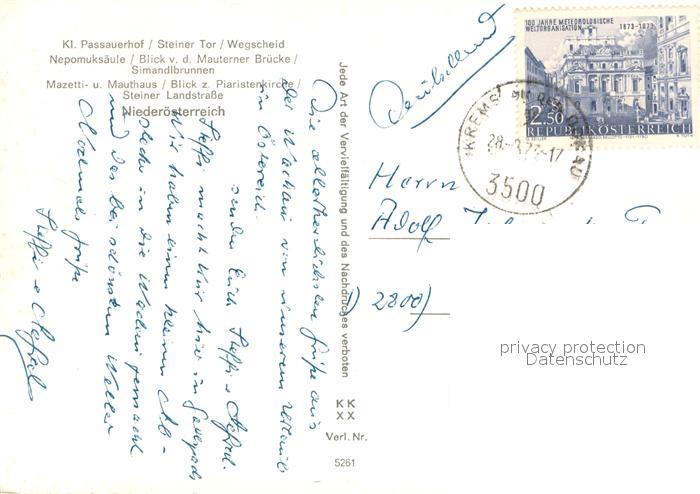 Kl. Passauerhof / Steiner Tor / Wegscheid
Nepomuksäule / Blick v. d. Mauterner Brücke /
Simandlbrunnen
Mazetti- u. Mauthaus / Blick z. Piaristenkirche /
Steiner Landstraße
Niederösterreich
Die allerherzlichsten Grüße aus
der Wachau von unserem Urlaub
in Österreich
senden Euch Steffi +
Steffi macht Kur hier in
Wir haben einen kleinen Ab-
stecher in die Wachau gemacht
und das bei schönstem Wetter
Nochmals Grüße
Steffi +
Jede Art der Vervielfältigung und des Nachdruckes verboten
KK
XX
Verl. Nr.
5261
Deutschland
100 JAHRE METEOROLOGISCHE
WELTORGANISATION 1873-1973
2.50
REPUBLIK ÖSTERREICH
KREMS AN DER DONAU
3500
Herrn
Adolf
2800
privacy protection
Datenschutz